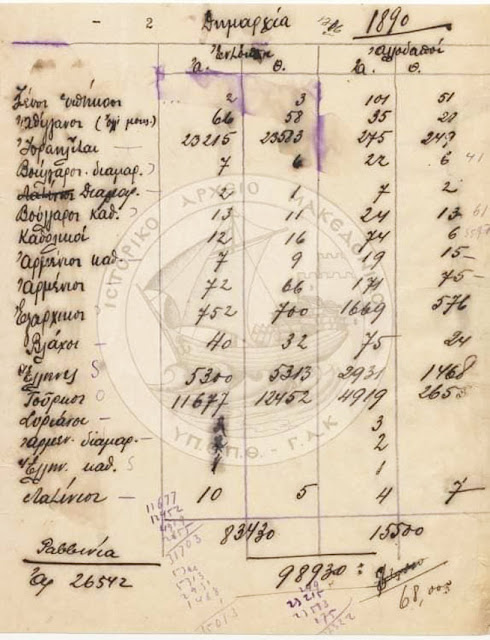 - 2 Δημαρχία 1890
Ἐντόπιοι Ἀλλοδαποί
Ἀ. Θ. Ἀ. Θ.
Ξένοι ὑπήκοοι 2 3 101 51
Ἀθίγγανοι 66 58 35 20
Ἰσραηλῖται 23215 23583 275 249
Βούλγαροι διαμαρ. 7 6 22 6 41
Λατῖνοι Διαμαρ. 2 1 7 2
Βούλγαροι καθ. 13 11 24 13 61
Καθολικοί 12 16 74 6
Ἀρμένιοι καθ. 7 9 19 15 -
Ἀρμένιοι 72 66 171 75 -
Ἐξαρχικοί 752 700 1669 576
Βλάχοι - 40 32 75 24
Ἕλληνες S 5300 5313 2931 1468
Τοῦρκοι O 11677 12452 4919 2655
Συριάνοι - 3
Ἀρμεν. διαμαρ. - 2
Ἕλλην. καθ. S 1 1
Λατῖνοι - 10 5 4 7
11677
12452
83430 15500
31703
Ραββινεία
26542 98930 :
68,000
ΙΣΤΟΡΙΚΟ ΑΡΧΕΙΟ ΜΑΚΕΔΟΝΙΑΣ
ΥΠ.Ε.Π.Θ. - Γ.Α.Κ